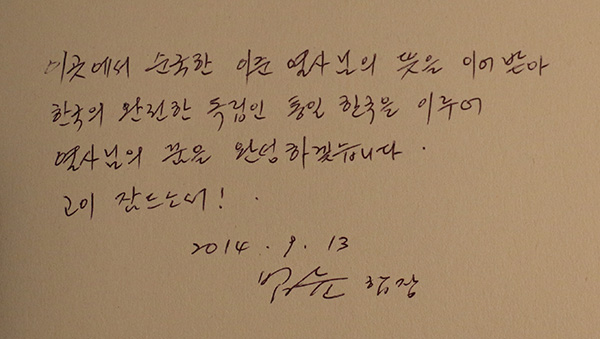 이곳에서 순국한 이준 열사님의 뜻을 이어 받아
한국의 완전한 독립인 통일 한국을 이루어
열사님의 꿈을 완성하겠습니다.
고이 잠드소서!.
2014. 9. 13